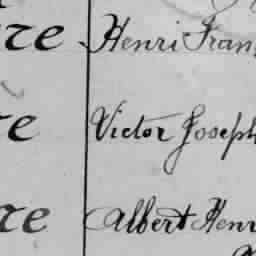 re Henri Fran
re Victor Joseph
re Albert Henr